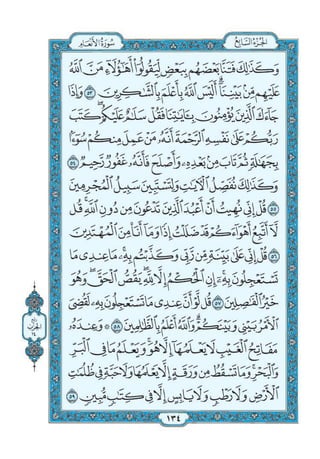 الجزء السابع
سورة الأنعام
وَكَذَٰلِكَ فَتَنَّا بَعْضَهُم بِبَعْضٍ لِّيَقُولُوٓا۟ أَهَـٰٓؤُلَآءِ مَنَّ ٱللَّهُ
عَلَيْهِم مِّنۢ بَيْنِنَآ أَلَيْسَ ٱللَّهُ بِأَعْلَمَ بِٱلشَّـٰكِرِينَ ٥٣ وَإِذَا
جَآءَكَ ٱلَّذِينَ يُؤْمِنُونَ بِـَٔايَـٰتِنَا فَقُلْ سَلَـٰمٌ عَلَيْكُمْ كَتَبَ
رَبُّكُمْ عَلَىٰ نَفْسِهِ ٱلرَّحْمَةَ أَنَّهُۥ مَنْ عَمِلَ مِنكُمْ سُوٓءًۢا
بِجَهَـٰلَةٍ ثُمَّ تَابَ مِنۢ بَعْدِهِۦ وَأَصْلَحَ فَأَنَّهُۥ غَفُورٌ رَّحِيمٌ ٥٤
وَكَذَٰلِكَ نُفَصِّلُ ٱلْـَٔايَـٰتِ وَلِتَسْتَبِينَ سَبِيلُ ٱلْمُجْرِمِينَ
٥٥ قُلْ إِنِّى نُهِيتُ أَنْ أَعْبُدَ ٱلَّذِينَ تَدْعُونَ مِن دُونِ ٱللَّهِ قُل
لَّآ أَتَّبِعُ أَهْوَآءَكُمْ قَدْ ضَلَلْتُ إِذًا وَمَآ أَنَا۠ مِنَ ٱلْمُهْتَدِينَ
٥٦ قُلْ إِنِّى عَلَىٰ بَيِّنَةٍ مِّن رَّبِّى وَكَذَّبْتُم بِهِۦ مَا عِندِى مَا
تَسْتَعْجِلُونَ بِهِۦٓ إِنِ ٱلْحُكْمُ إِلَّا لِلَّهِ يَقُصُّ ٱلْحَقَّ وَهُوَ
خَيْرُ ٱلْفَـٰصِلِينَ ٥٧ قُل لَّوْ أَنَّ عِندِى مَا تَسْتَعْجِلُونَ بِهِۦ لَقُضِىَ
ٱلْأَمْرُ بَيْنِى وَبَيْنَكُمْ وَٱللَّهُ أَعْلَمُ بِٱلظَّـٰلِمِينَ ٥٨ ۞ وَعِندَهُۥ
مَفَاتِحُ ٱلْغَيْبِ لَا يَعْلَمُهَآ إِلَّا هُوَ وَيَعْلَمُ مَا فِى ٱلْبَرِّ
وَٱلْبَحْرِ وَمَا تَسْقُطُ مِن وَرَقَةٍ إِلَّا يَعْلَمُهَا وَلَا حَبَّةٍ فِى ظُلُمَـٰتِ
ٱلْأَرْضِ وَلَا رَطْبٍ وَلَا يَابِسٍ إِلَّا فِى كِتَـٰبٍ مُّبِينٍ ٥٩
ربع
الحزب
١٤
١٣٤